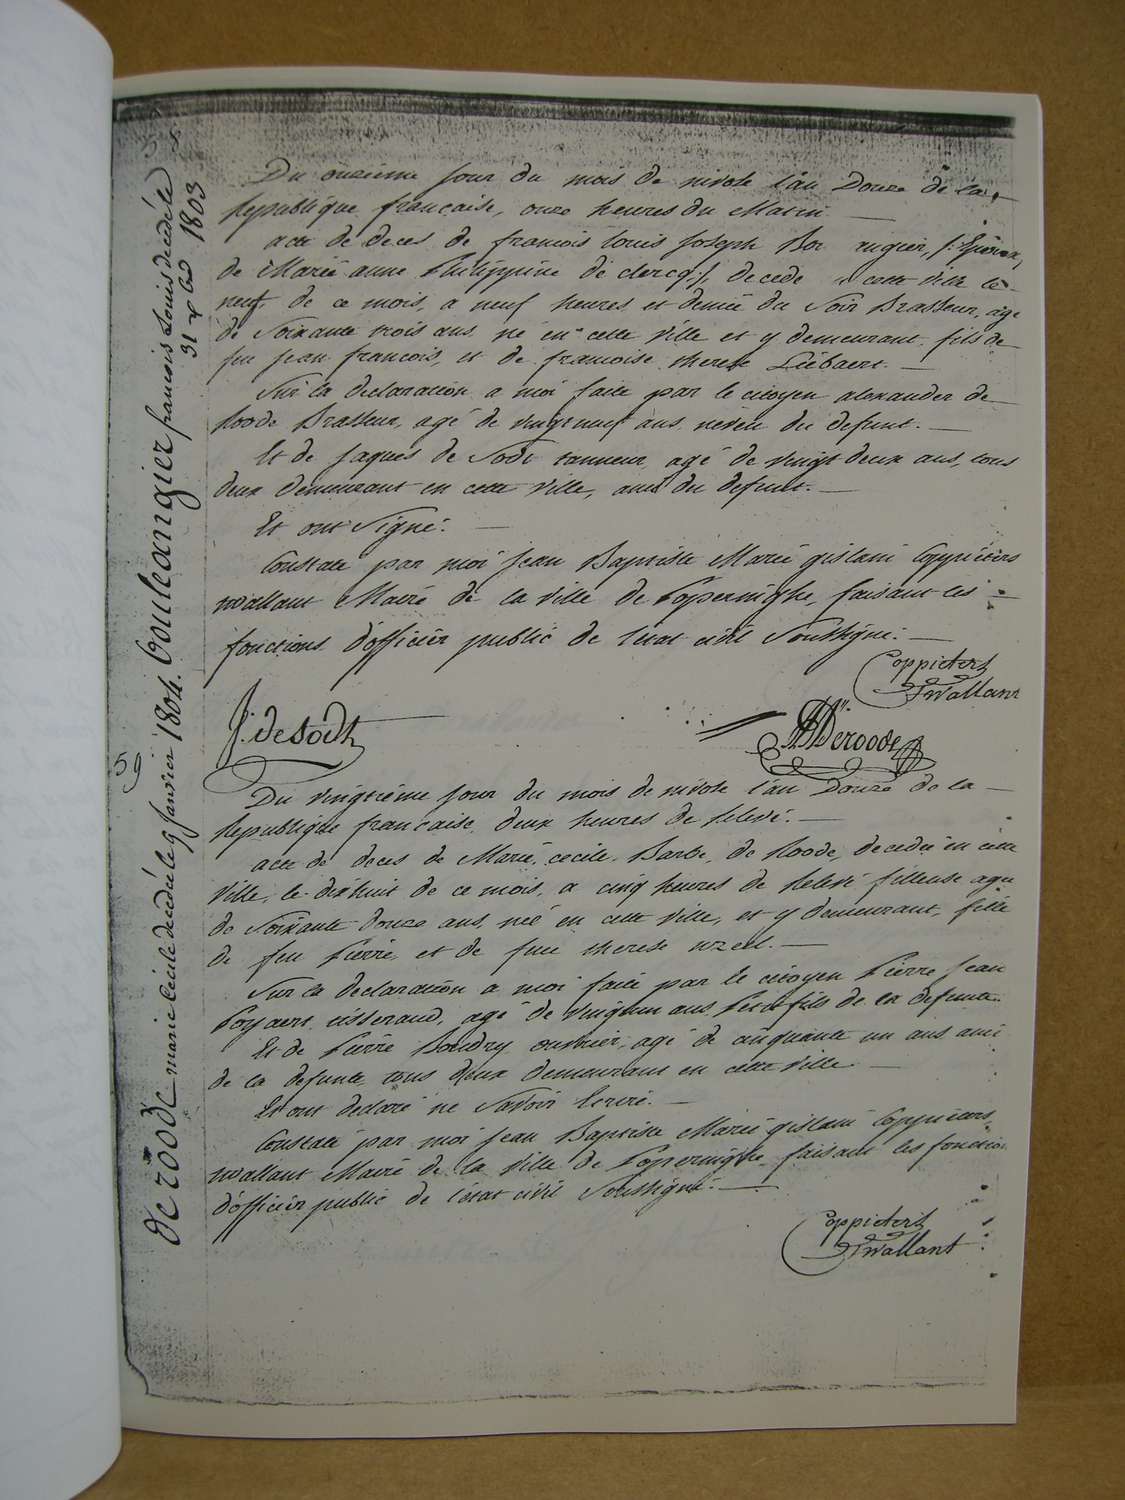 Du onzieme jour du mois de nivose l'an Douze de la
Republique française, onze heures du Matin
acte de deces de francois Louis Joseph Bou angier, /:Epoux
de Marie anne Philippine de clercq:/ decede cette ville le
neuf de ce mois, a neuf heures et demie du Soir Brasseur, agé
de Soixante trois ans, né en cette ville et y demeurant fils de
feu jean francois, et de francoise therese Liebaert.
Sur la declaration a moi faite par le citoyen alexander de
Roode Brasseur, agé de vingt neuf ans neveu du defunt.
Et de jaques de Sodt tanneur agé de vingt deux ans, tous
deux demeurant en cette ville, amis du defunt.
Et ont Signé.
Constaté par moi jean Baptiste Marie gislain Coppieters
wallant Maire de la ville de Poperinghe, faisant les
fonctions d'officier public de l'etat civil Soussigné.
Coppieters
Twallant
J. de Sodt
Deroode
59
Du vingtieme jour du mois de nivose l'an Douze de la
Republique francaise deux heures de relevé.
acte de deces de Marie cecile Barbe de Roode, decedée en cette
ville, le dixhuit de ce mois, a cinq heures de relevé fileuse agee
de Soixante douze ans, née en cette ville, et y demeurant, fille
de feu Pierre et de feue therese
Sur la declaration a moi faite par le citoyen Pierre jean
tisserand, agé de vingt un ans Petit fils de la defunte.
Et de Pierre Boudry ouvrier, agé de cinquante un ans ami
de la defunte tous deux demeurant en cette ville
Et ont declaré ne Savoir Ecrire.
Constaté par moi jean Baptiste Marie gislain Coppieters
wallant Maire de la ville de Poperinghe faisant les fonctions
d'officier public de l'etat civil Soussigné.
Coppieters
Twallant
Bouleangier francois Louis decédé le
31 Xbre 1803
de roode marie Cécile decédée le 9 Janvier 1804.